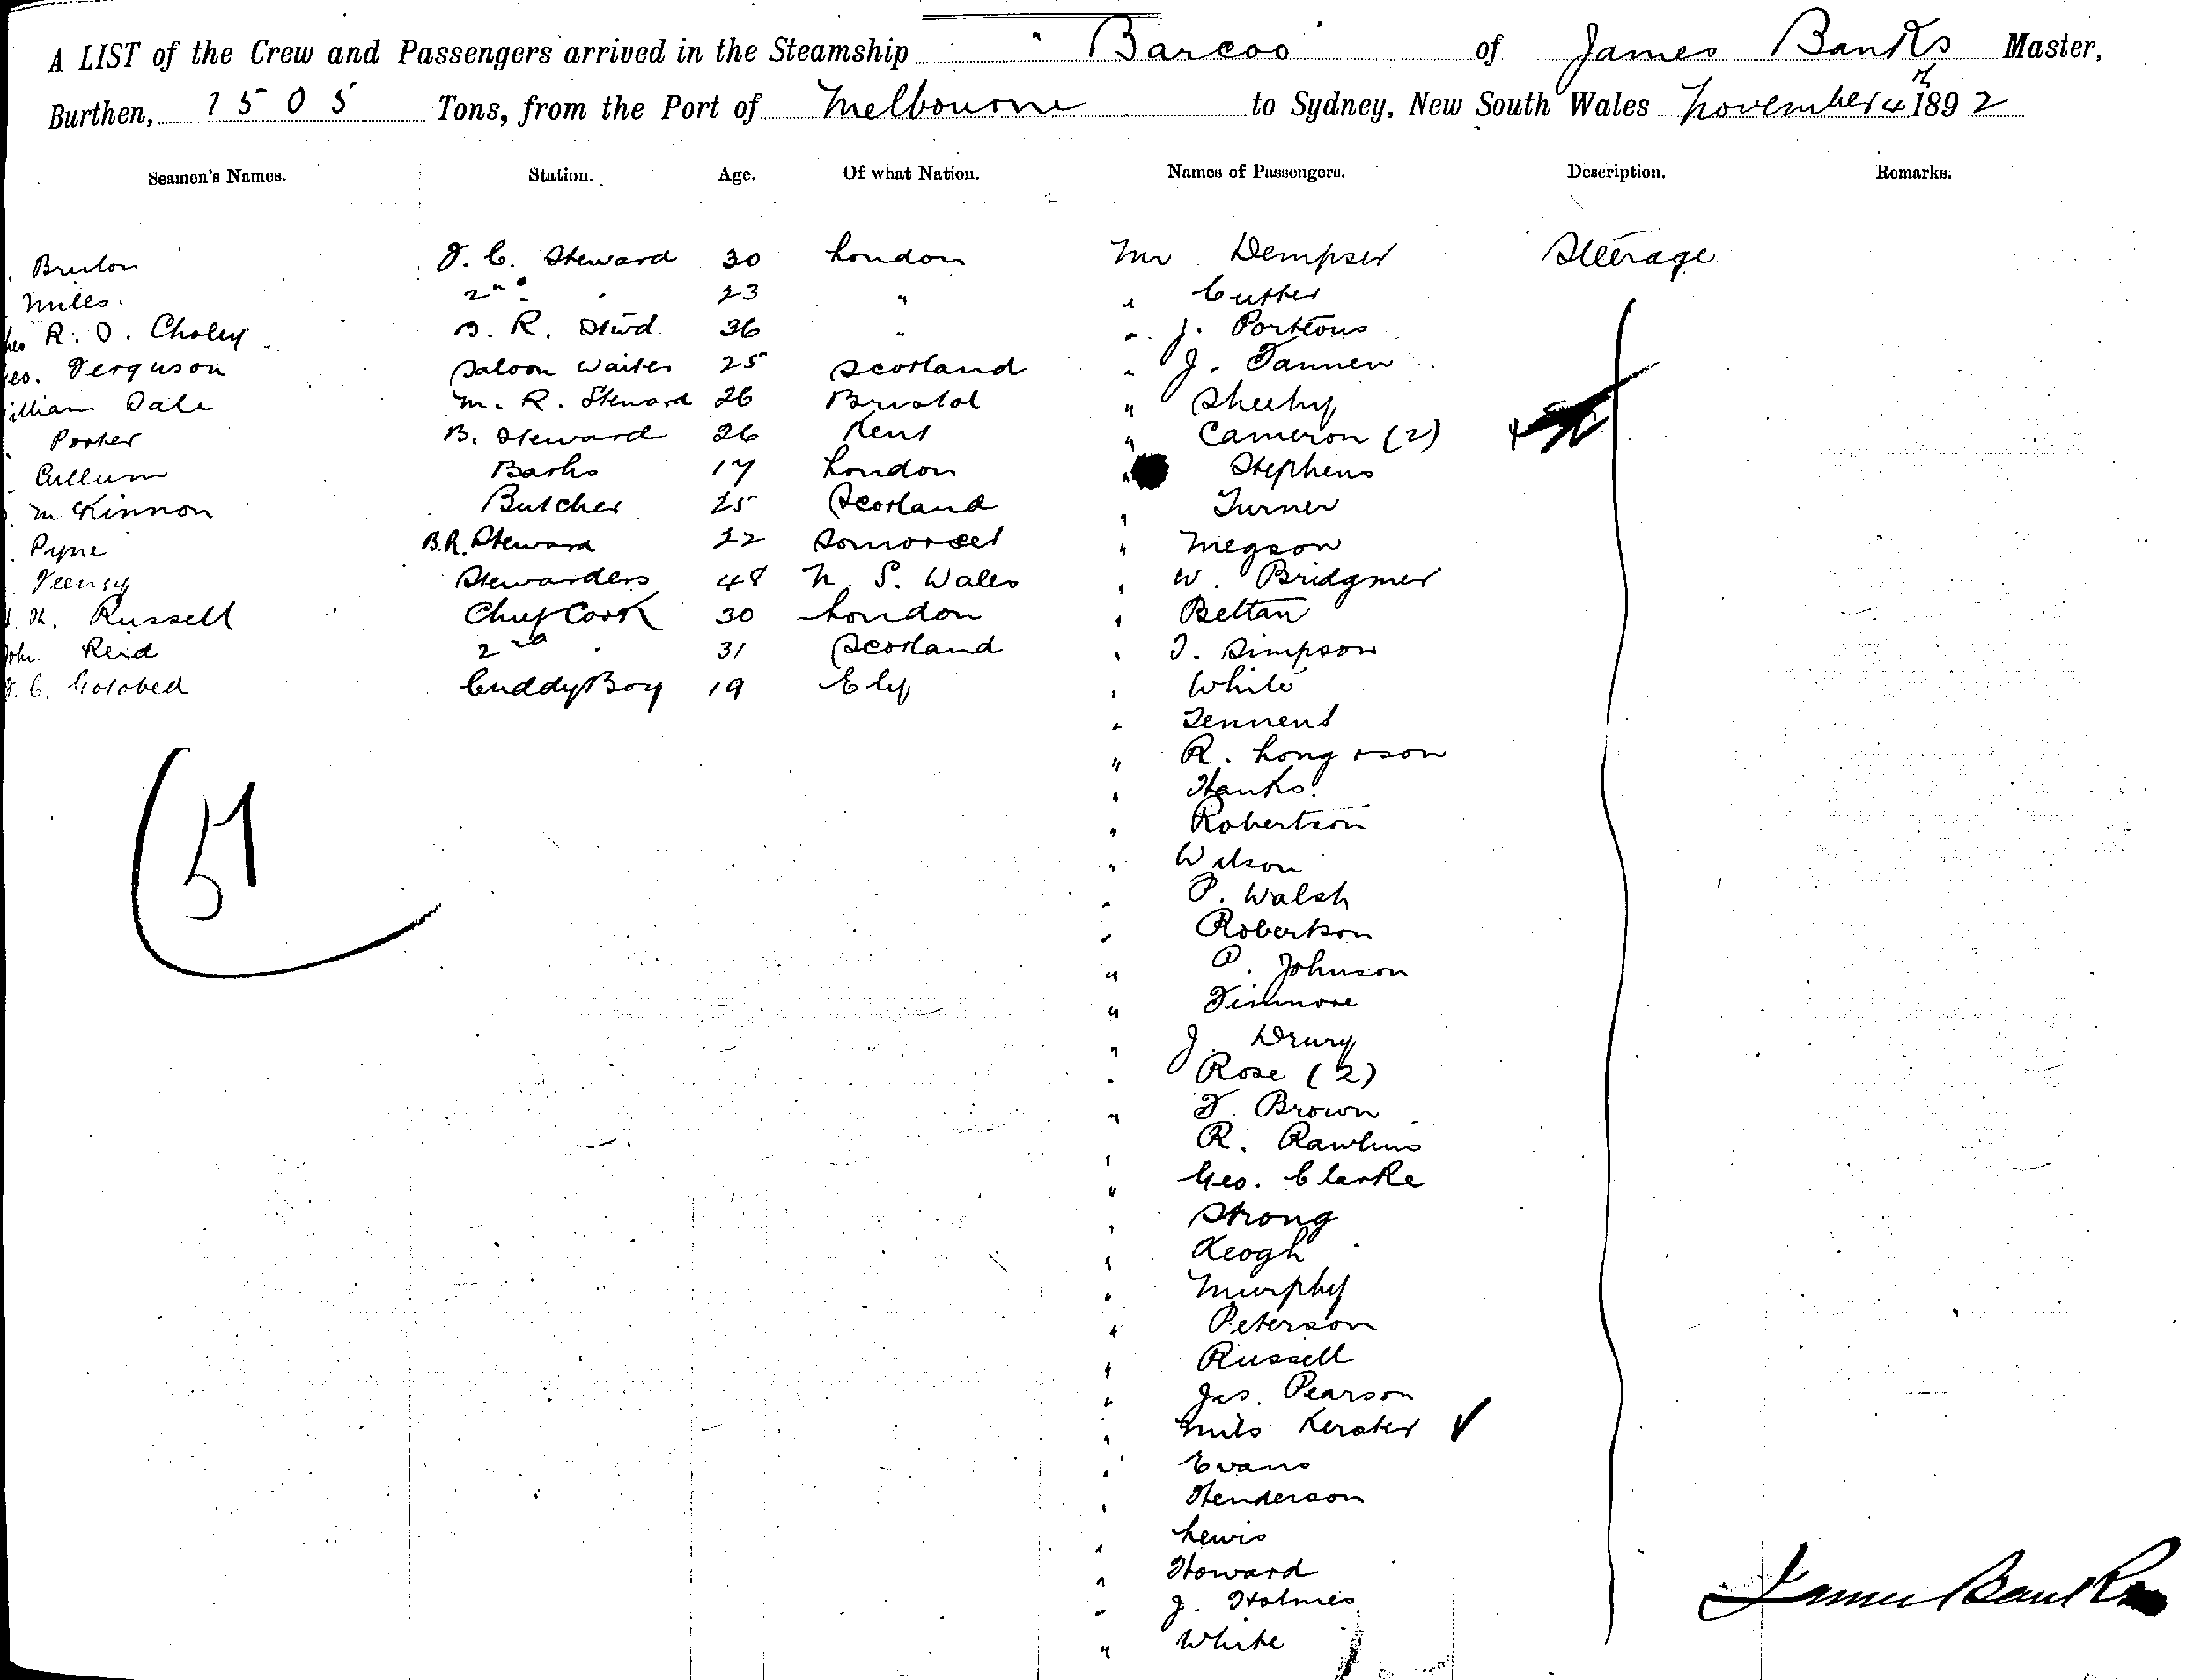 A LIST of the Crew and Passengers arrived in the Steamship "Barcoo" of James Banks Master,
Burthen, 1505 Tons, from the Port of Melbourne to Sydney, New South Wales November 4th 1892
Seamen's Names. Station. Age. Of what Nation. Names of Passengers. Description. Remarks.
Bruton F. C. Steward 30 London Mr Dempser Steerage
Miles. 2nd " 23 " " Cutter
R. O. Choley B. R. Stwd 36 " " J. Porteous
Ferguson Saloon Waiter 25 Scotland " J. Tannen
illiam Dale M. R. Steward 26 Bristol " Sheehy
Porter B. Steward 26 Kent " Cameron (2)
Cullum Barks 17 London " Stephens
McKinnon Butcher 25 Scotland " Turner
Pyne B.R. Steward 22 Somerset " Megson
Stewardess 48 N. S. Wales " W. Bridgmer
H. Russell Chief Cook 30 London " Beltan
John Reid 2nd " 31 Scotland " T. Simpson
C. Golobed Cuddy Boy 19 Ely " White
" Tennent
51
" R. Long
" Hanks.
" Robertson
" Wilson
" P. Walsh
" Robertson
" P. Johnson
" Finmore
" J. Drury
" Rose (2)
" F. Brown
" R. Rawlins
" Geo. Clarke
" Strong
" Keogh
" Murphy
" Peterson
" Russell
" Jas. Pearson
" Nils Kerster
" Evans
" Henderson
" Lewis
" Howard
" J. Holmes
James Banks
" White